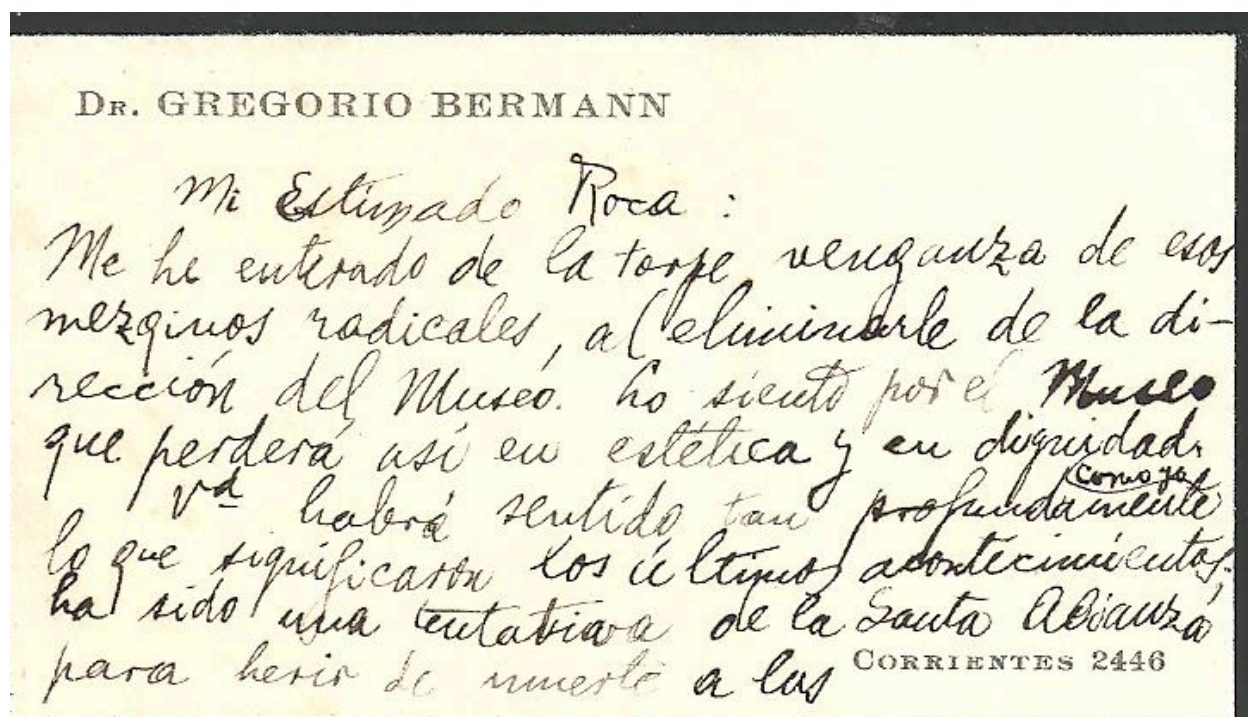 DR. GREGORIO BERMANN
Mi Estimado Roca :
Me he enterado de la torpe venganza de esos
mezqinos radicales, al eliminarle de la di-
rección del Museo. Lo siento por el Museo
que perderá así en estética y en dignidad.
como yo
Vd habrá sentido tan profundamente
lo que significaron los últimos acontecimientos;
ha sido una tentativa de la Santa Alianza
para herir de muerte a las
CORRIENTES 2446